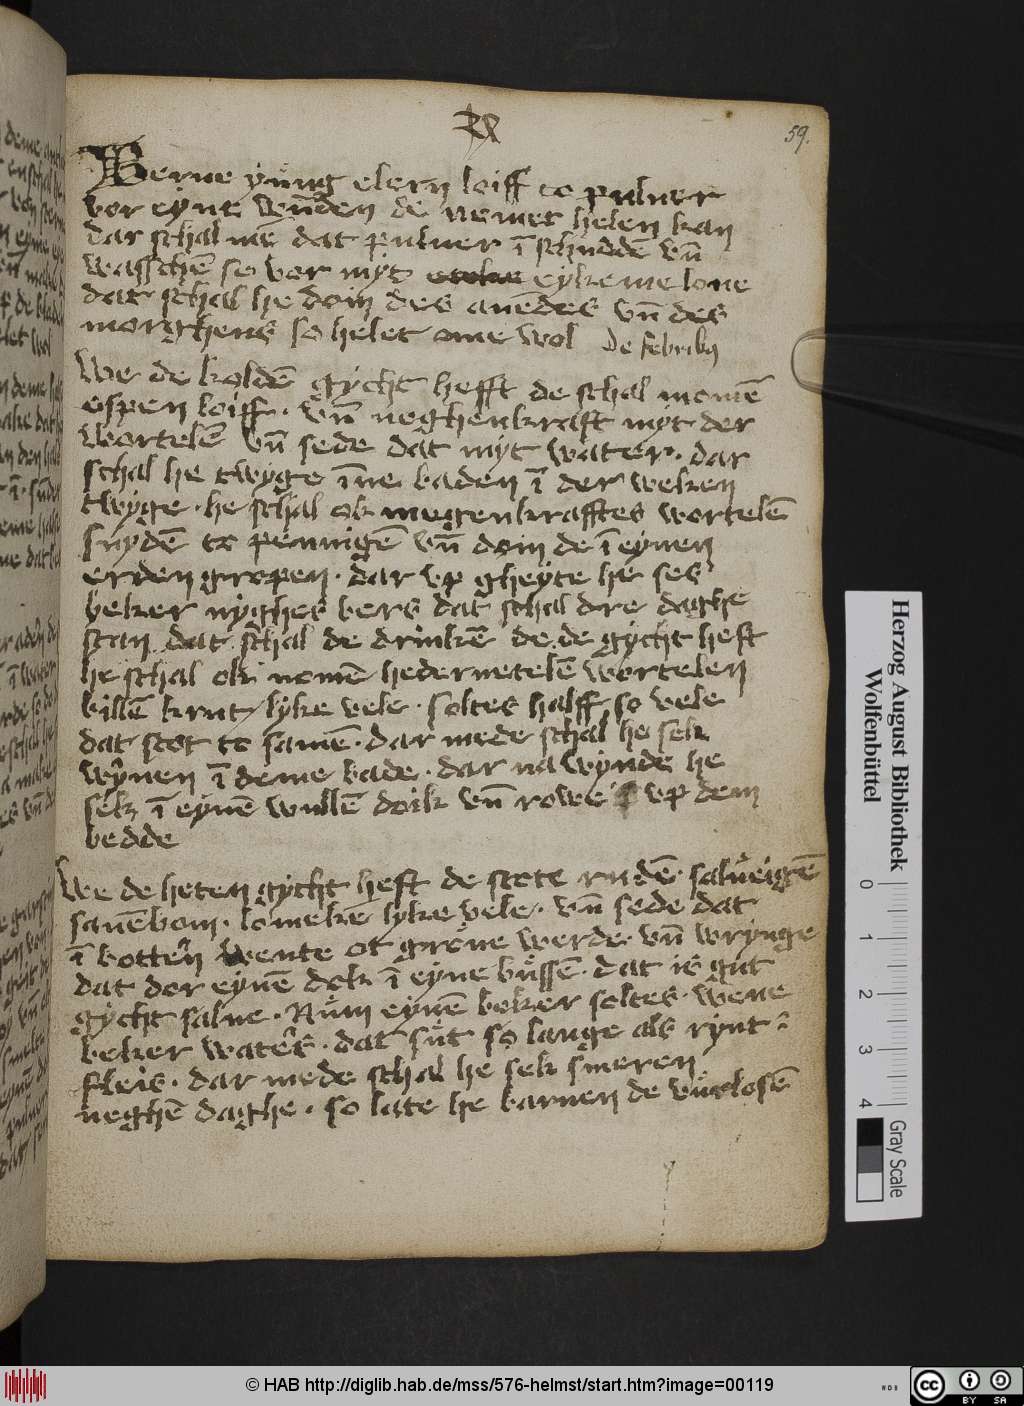 59.
Berne yung elern loiff to puluer
vor eyne wūden de nemet helen kan
dar schal me dat puluer ī schuddē vn̄
wasschē so vor myt eykeme loue
dat schal he doin des auēdes vn̄ des
morghens so helet ome wol De febribꝫ
We de koldē gycht hefft de schal nomē
espen loiff. vn̄ neghenkraft myt der
wortelē vn̄ sede dat myt water. dar
schal he twyge īne baden ī der weken
twyge. he schal ok negenkrafftes wortelē
snydē to pennigē vn̄ doin de ī eynen
erden gropen. dar vp gheyte he ses
beker nyghes bers dat schal dre daghe
stan dat schal de drinkē de de gycht heft
he schal ok nomē hedernetelē wortelen
billē krut lyke vele. soltes halff so vele
dat stot to samē. dar mede schal he sek
wrynen ī deme bade. dar na wynde he
sek ī eynē wullē doik vn̄ rowe vp dem
bedde
We de heten gycht heft de stote rudē. salueigē
sauēbom. lomekē lyke vele. vn̄ sede dat
ī botterē wente ot grone werde. vn̄ wrynge
dat dor eynē dok ī eyne bussē. dat is gut
gycht salue. Num eynē beker soltes. wene
beker waters. dat sut so lange als rynt
fleis. dar mede schal he sek smeren
neghē daghe. so late he barnen de vurlosē
Herzog August Bibliothek
Wolfenbüttel
0 1 2 3 4
Gray Scale
© HAB http://diglib.hab.de/mss/576-helmst/start.htm?image=00119
WDB
cc BY SA